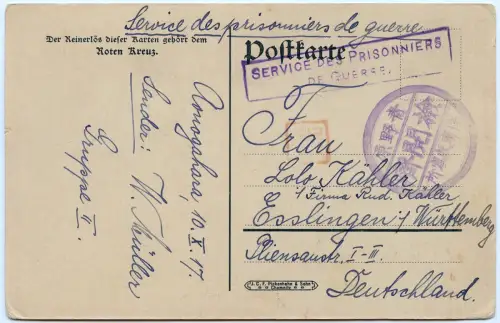 Service des prisonniers de guerre
Der Reinerlös dieser Karten gehört dem
Roten Kreuz.
Postkarte
SERVICE DES PRISONNIERS
DE GUERRE.
Aonogahara, 10. X. 17.
Sender: W. Müller
Gruppe II.
Frau
Lolo Kähler
i/ Firma Rud. Kähler
Esslingen i/ Württemberg
Pliensaustr. I-III.
Deutschland.
青野原
検閲